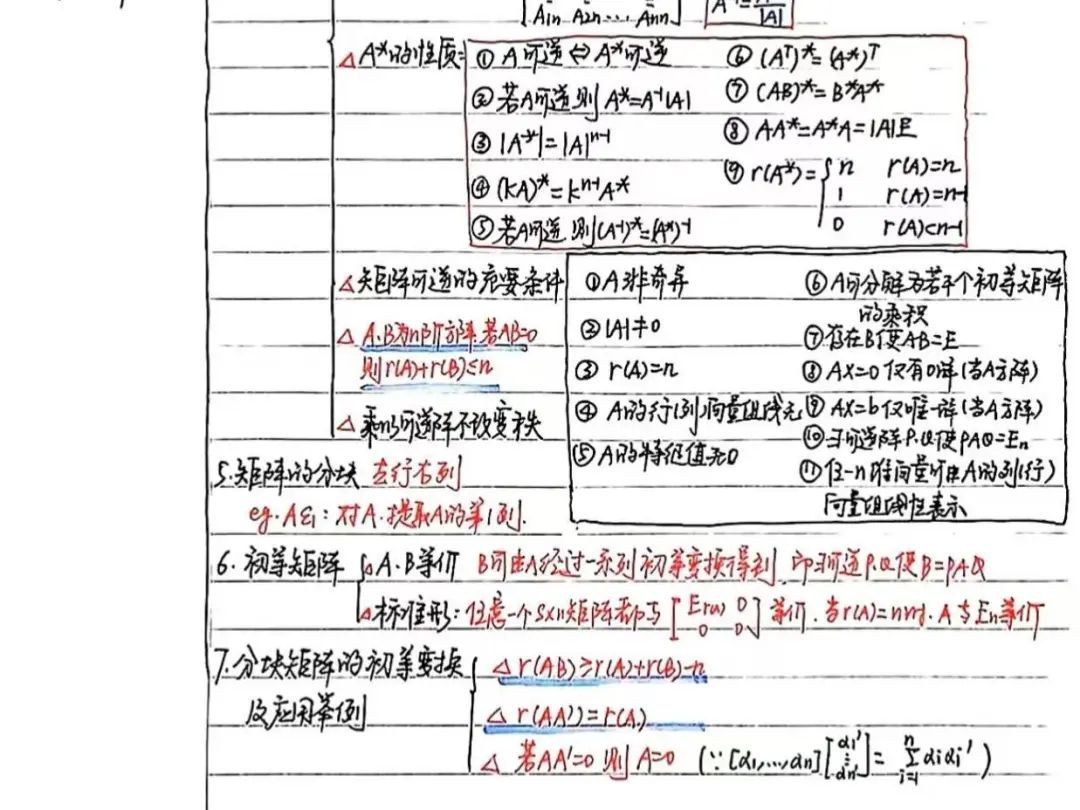 A1n A2n … Ann
|A|
△ A*的性质:
① A可逆⇔A*可逆
② 若A可逆则 A*=A⁻¹|A|
③ |A*|=|A|ⁿ⁻¹
④ (kA)*=kⁿ⁻¹A*
⑤ 若A可逆则(A⁻¹)*=(A*)⁻¹
⑥ (Aᵀ)*=(A*)ᵀ
⑦ (AB)*=B*A*
⑧ AA*=A*A=|A|E
⑨ r(A*)={ n r(A)=n
1 r(A)=n-1
0 r(A)<n-1
△矩阵可逆的充要条件
① A非奇异
② |A|≠0
③ r(A)=n
④ A的行(列)向量组线无
⑤ A的特征值无0
⑥ A可分解为若干个初等矩阵
的乘积
⑦ 存在B使AB=E
⑧ AX=0仅有0解(当A方阵)
⑨ AX=b仅唯一解(当A方阵)
⑩ ∃可逆阵P.Q使PAQ=En
⑪ 任一n维向量可由A的列(行)
向量组线性表示
△ A.B为n阶方阵.若AB=0
则r(A)+r(B)≤n
△ 乘以可逆阵不改变秩
5.矩阵的分块 左行右列
eg. Aε₁:对A.提取A的第1列.
6.初等矩阵
△ A.B等价 B可由A经过一系列初等变换得到.即∃可逆P.Q使B=PAQ
△标准形:任意一个s×n矩阵都与[Er(A) 0
0 0]等价.当r(A)=n时.A与En等价
7.分块矩阵的初等变换
及应用举例
△ r(AB)≥r(A)+r(B)-n
△ r(AA')=r(A)
△ 若AA'=0则A=0 (∵[α₁,…,αn][α₁' ⋮ αn']=∑ⁿᵢ₌₁αᵢαᵢ')